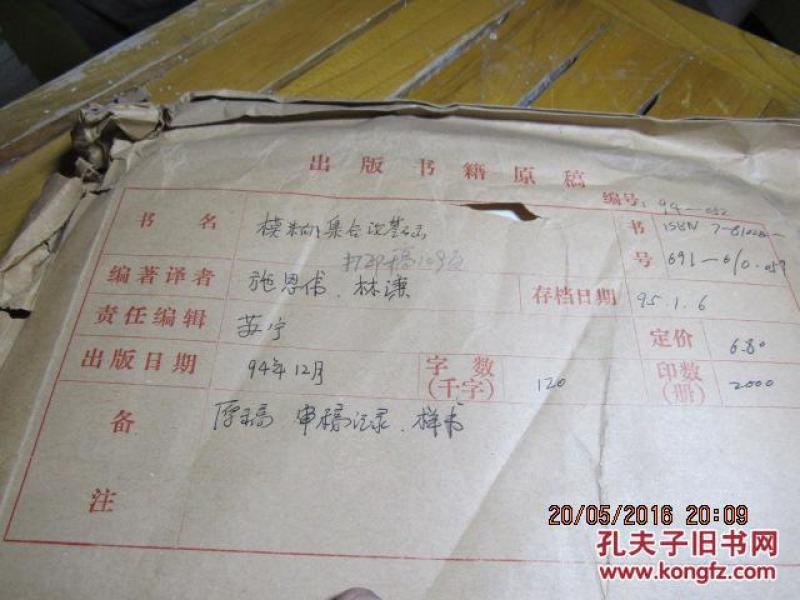 出版书籍原稿
编号: 94-052
书名 模糊集合论基础 书 ISBN 7-81028-
打印稿109页
编著译者 施恩伟、林谦 号 691-0/0.059
责任编辑 苏宁 存档日期 95.1.6
定价 6.80
出版日期 94年12月 字数(千字) 120 印数(册) 2000
备注 原稿 审稿记录、样书
20/05/2016 20:09
孔夫子旧书网
www.kongfz.com